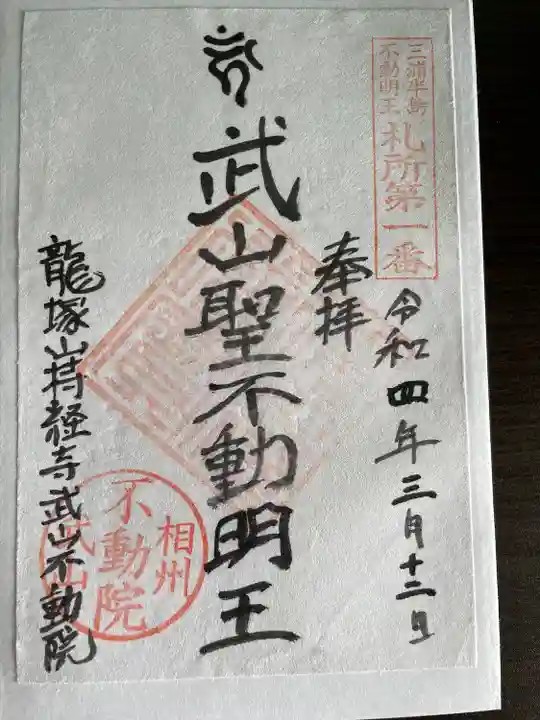 三浦半島
不動明王
札所第一番
奉拝
令和四年三月十二日
武山聖不動明王
龍塚山持経寺武山不動院
相州
不動院
武山